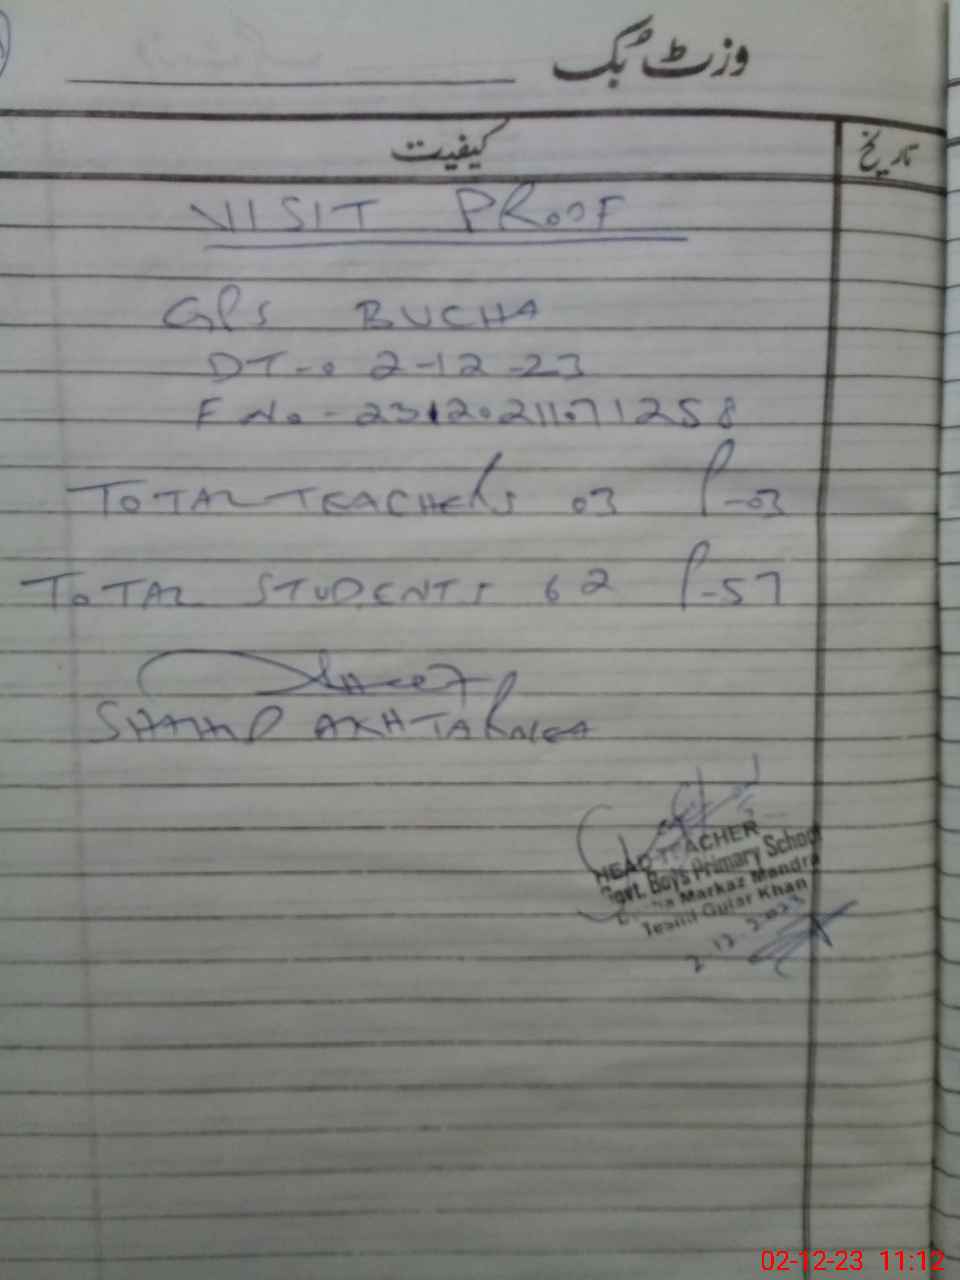 وزٹ بُک
کیفیت
تاریخ
VISIT PROOF
GPS BUCHA
DT-. 2-12-23
F No - 23120211071258
TOTAL TEACHERS 03 P-03
TOTAL STUDENTS 62 P-57
SHAHID AKHTAR
HEAD TEACHER
Govt. Boys Primary School
Markaz Mandra
Tehsil Gujar Khan
2.12.2023
02-12-23 11:12